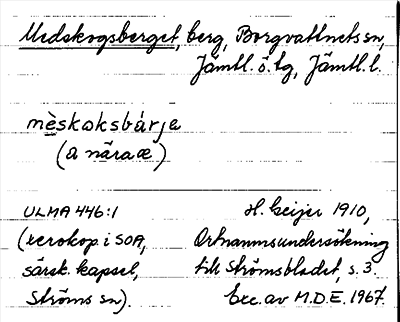 Medskogsberget, berg, Borgvattnets sn,
Jämtl. ö. tg, Jämtl. l.
mèskoksbárja
(a nǟra æ)
ULMA 446:1 H. Geijer 1910,
(xerokop. i SOA, Ortnamnsundersökning
särsk. kapsel, till Strömsbladet, s. 3.
Ströms sn). Exc. av M.D.E. 1967.